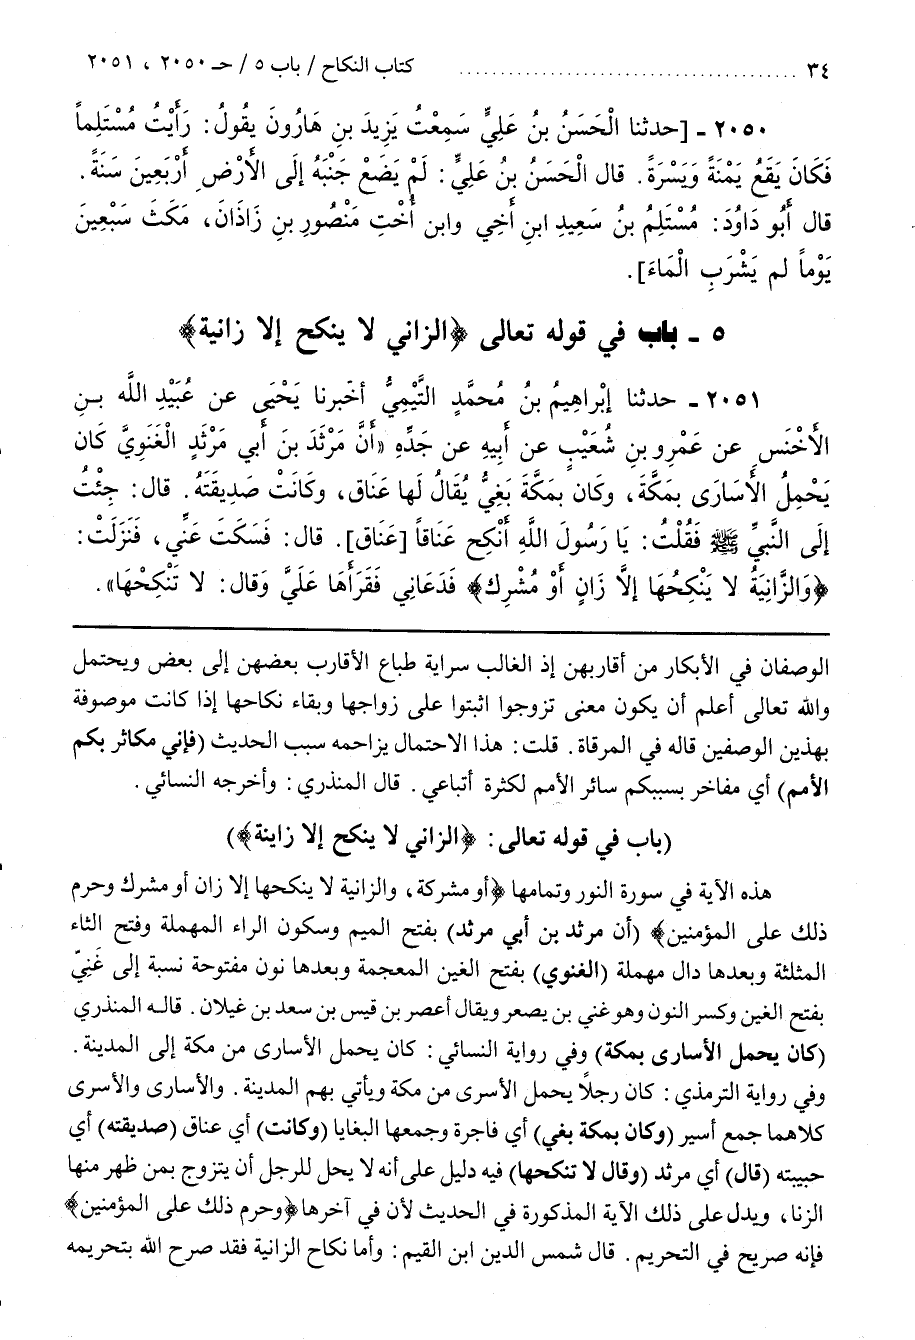 ٣٤ ........................................ كتاب النكاح / باب ٥ / حـ ٢٠٥٠ ، ٢٠٥١
٢٠٥٠ ـ [حدثنا الْحَسَنُ بنُ عَلِيٍّ سَمِعْتُ يَزِيدَ بنِ هَارُونَ يقُولُ: رَأَيْتُ مُسْتَلِماً
فَكَانَ يَقَعُ يَمْنَةً وَيَسْرَةً. قال الْحَسَنُ بنُ عَلِيٍّ: لَمْ يَضَعْ جَنْبَهُ إلَى الأَرْضِ أَرْبَعِينَ سَنَةً.
قال أَبُو دَاوُدَ: مُسْتَلِمُ بنُ سَعِيدِ ابنِ أَخِي وابن أُخْتِ مَنْصُورِ بنِ زَاذَانَ، مَكَثَ سَبْعِينَ
يَوْماً لم يَشْرَبِ الْمَاءَ].
٥ ـ باب في قوله تعالى ﴿الزاني لا ينكح إلا زانية﴾
٢٠٥١ ـ حدثنا إبْراهِيمُ بنُ مُحمَّدٍ التَّيْمِيُّ أخبرنا يَحْيَى عن عُبَيْدِ اللَّه بـنِ
الأَخْنَسِ عن عَمْرِو بنِ شُعَيْبٍ عن أَبِيهِ عن جَدِّهِ «أَنَّ مَرْثَدَ بنَ أَبي مَرْثَدٍ الْغَنَوِيَّ كَان
يَحْمِلُ الأَسَارَى بمَكَّةَ، وكَان بمَكَّةَ بَغِيٌّ يُقَالُ لَها عَنَاق، وكَانَتْ صَدِيقَتَهُ. قال: جِئْتُ
إلَى النَّبيِّ ﷺ فَقُلْتُ: يَا رَسُولَ اللَّهِ أَنْكِح عَنَاقاً [عَنَاق]. قال: فَسَكَتَ عَنِّي، فَنَزَلَتْ:
﴿وَالزَّانِيَةُ لا يَنْكِحُهَا إلاَّ زَانٍ أَوْ مُشْرِكٌ﴾ فَدَعَانِي فَقَرَأَهَا عَلَيَّ وَقال: لا تَنْكِحْهَا».
الوصفان في الأبكار من أقاربهن إذ الغالب سراية طباع الأقارب بعضهن إلى بعض ويحتمل
والله تعالى أعلم أن يكون معنى تزوجوا اثبتوا على زواجها وبقاء نكاحها إذا كانت موصوفة
بهذين الوصفين قاله في المرقاة. قلت: هذا الاحتمال يزاحمه سبب الحديث (فإني مكاثر بكم
الأمم) أي مفاخر بسببكم سائر الأمم لكثرة أتباعي. قال المنذري: وأخرجه النسائي.
(باب في قوله تعالى: ﴿الزاني لا ينكح إلا زاينة﴾)
هذه الآية في سورة النور وتمامها ﴿أو مشركة، والزانية لا ينكحها إلا زان أو مشرك وحرم
ذلك على المؤمنين﴾ (أن مرثد بن أبي مرثد) بفتح الميم وسكون الراء المهملة وفتح الثاء
المثلثة وبعدها دال مهملة (الغنوي) بفتح الغين المعجمة وبعدها نون مفتوحة نسبة إلى غَنِيّ
بفتح الغين وكسر النون وهو غني بن يصعر ويقال أعصر بن قيس بن سعد بن غيلان. قالـه المنذري
(كان يحمل الأسارى بمكة) وفي رواية النسائي: كان يحمل الأسارى من مكة إلى المدينة.
وفي رواية الترمذي: كان رجلاً يحمل الأسرى من مكة ويأتي بهم المدينة. والأسارى والأسرى
كلاهما جمع أسير (وكان بمكة بغي) أي فاجرة وجمعها البغايا (وكانت) أي عناق (صديقته) أي
حبيبته (قال) أي مرثد (وقال لا تنكحها) فيه دليل على أنه لا يحل للرجل أن يتزوج بمن ظهر منها
الزنا، ويدل على ذلك الآية المذكورة في الحديث لأن في آخرها ﴿وحرم ذلك على المؤمنين﴾
فإنه صريح في التحريم. قال شمس الدين ابن القيم: وأما نكاح الزانية فقد صرح الله بتحريمه